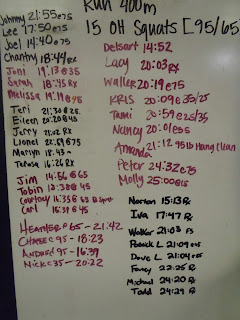 Run 400m
15 OH Squats [95/65
Johnny 21:55@75
Lee 17:50@75
Joel 14:40@75
Chantry 18:44RX
Joni 19:13@35
Sarah 18:45RX
Melissa 19:19@45
Teri 21:30@25
Eileen 20:20@45
Jerry 21:02 RX
Lionel 22:59@75
Marlyn 18:43
Teresa 16:26RX
Jim 14:56@65
Tobin 12:38@45
Courtney 16:35@53
Carl 16:39@45
HEATHER@65-21:42
CHASE@95-18:23
ANDRE@95-16:39
NICK@35-20:22
Delsart 14:52
Lacy 20:03RX
Waller 20:19@75
KRIS 20:09@35/25
Tami 20:59@25/35
Nancy 20:01@55
Amanda 21:12 95lb Hang Clean
Peter 24:32@75
Molly 25:00@15
Norton 15:13Rx
Iva 17:47 Rx
Walker 21:03
Patrick L 21:09
Dave L 21:04
Fancy 22:25 Rx
Michael 24:20 Rx
Todd 24:29 Rx